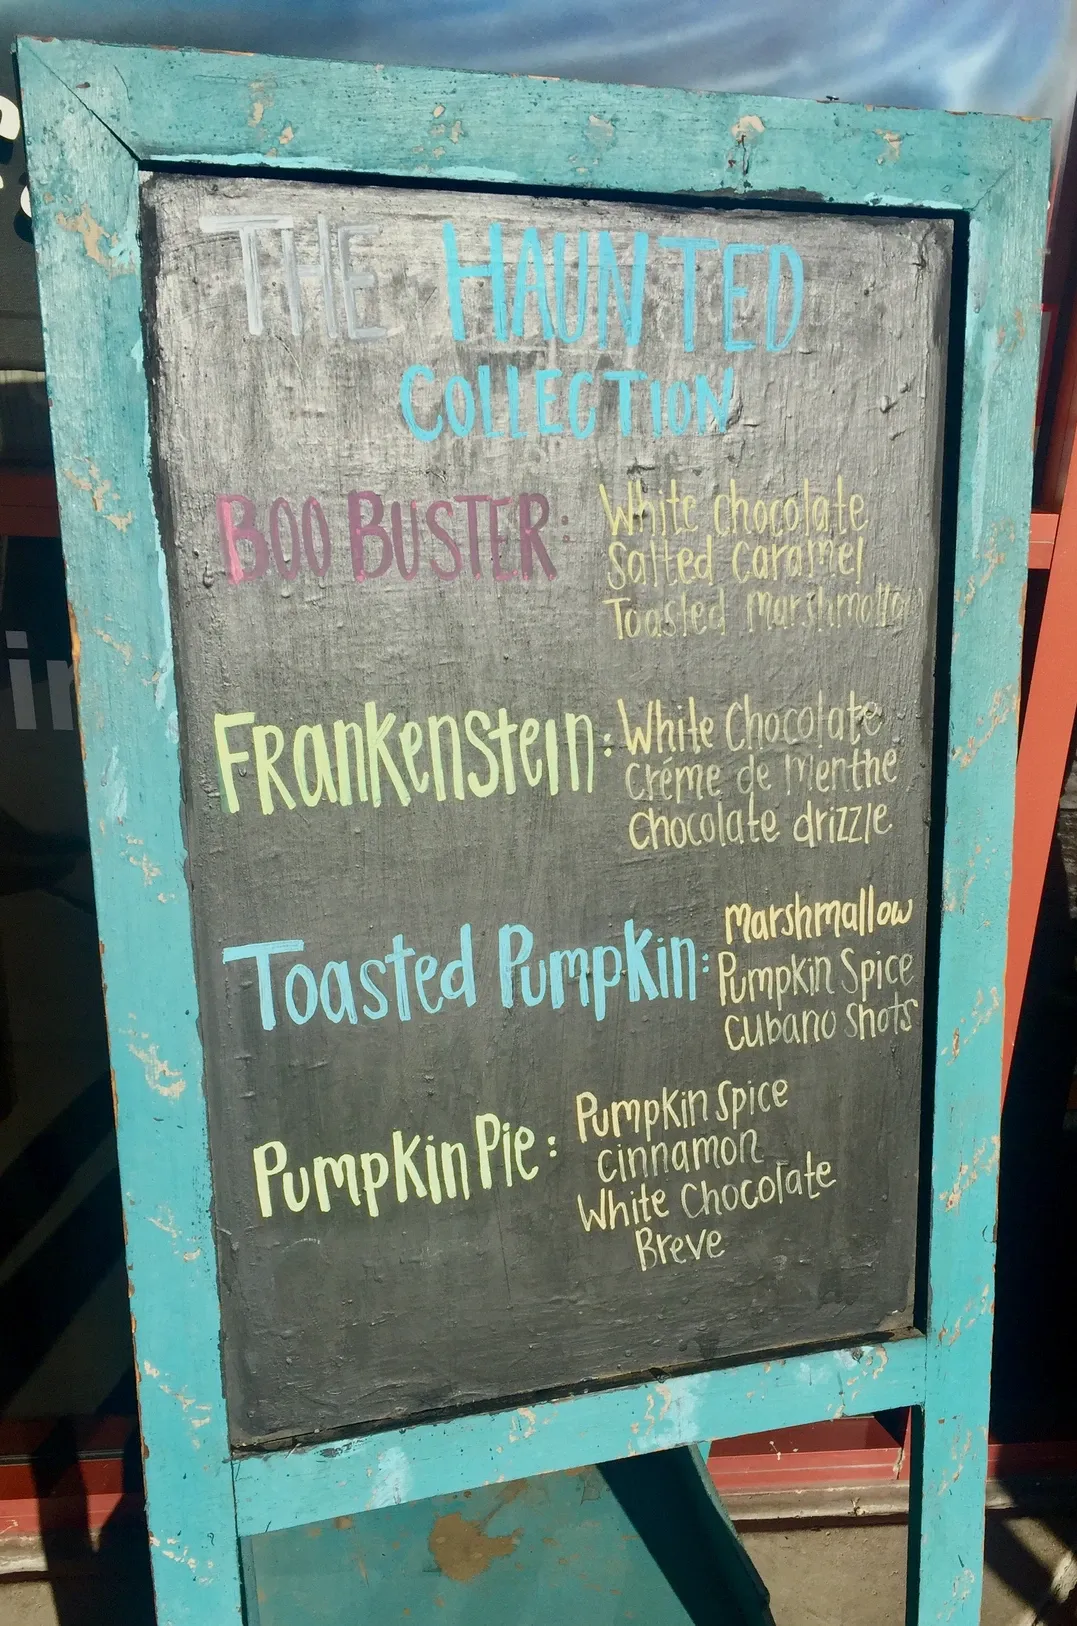 THE HAUNTED
COLLECTION
BOO BUSTER:
White chocolate
Salted Caramel
Toasted Marshmallow
Frankenstein:
White Chocolate
Créme de Menthe
chocolate drizzle
Toasted Pumpkin:
marshmallow
Pumpkin Spice
Cubano Shots
Pumpkin Pie:
Pumpkin Spice
cinnamon
White Chocolate
Breve